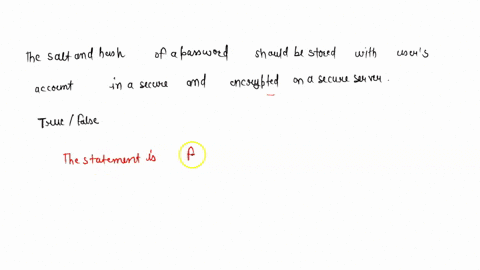 The salt and hash of a password should be stored with user's
account in a secure and encrypted on a secure server.
True / False
The statement is